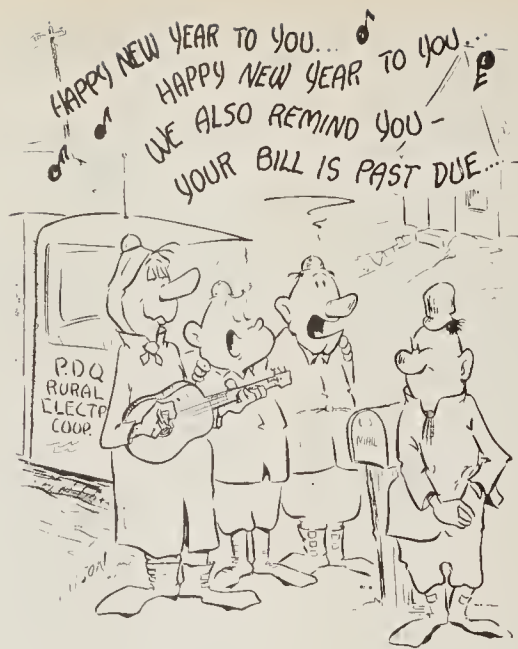 HAPPY NEW YEAR TO YOU...
HAPPY NEW YEAR TO YOU...
WE ALSO REMIND YOU -
YOUR BILL IS PAST DUE...
P.D.Q
RURAL
ELECTR
COOP.
MAIL